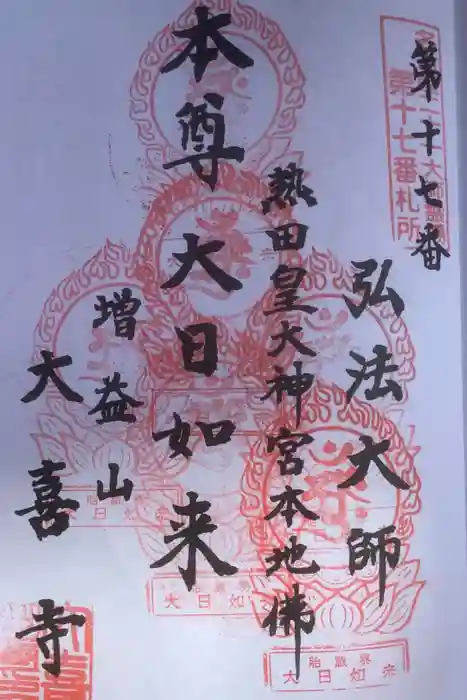 第十七番
第十七番札所
弘法大師
熱田皇大神宮本地佛
本尊大日如来
増益山
大喜寺
胎蔵界
大日如来
大日如来
大日如来